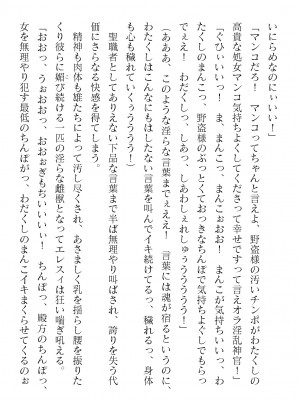 いにらめなのにぃぃい！
「マンコだろ！　マンコってちゃんと言えよ、野盗様の汚いチンポがわたくしの
高貴な処女マンコ気持ちよくしてくださって幸せですって言えオラ淫乱神官！」
「ぐひぃぃいっ！　ま、まんこ、まんこぉぉお！　まんこが気持ちいいっ、わ
たくしのまんこっ、野盗様のぶっとくておっきなちんぽで気持ちよぐしでもらっ
でぇえ！　わだくしっ、しあっ、しあわしぇれしゅぅうううう！」
（あああ、このような淫らな言葉までぇええ！　言葉には魂が宿るというのに、
わたくしはこんなにもはしたない言葉を叫んでイキ続けてるっ、穢れるっ、身体
も心も穢れていくぅうううう！）
　聖職者としてありえない下品な言葉まで半ば無理やり叫ばされ、誇りを失う代
償にさらなる快感を得てしまう。
　精神も肉体も雄たちによって汚し尽くされ、あさましく乳を揺らし腰を振りた
くり彼らに媚び続ける一匹の淫らな雌獣となってエレスィは狂い喘ぎ吼える。
「おおっ、うぉおおっ、おおぉぎもぢいいいい！　ちんぽっ、殿方のちんぽっ、
女を無理やり犯す最低のちんぽがっ、わだくしのまんこイキまくらせてくるのぉ